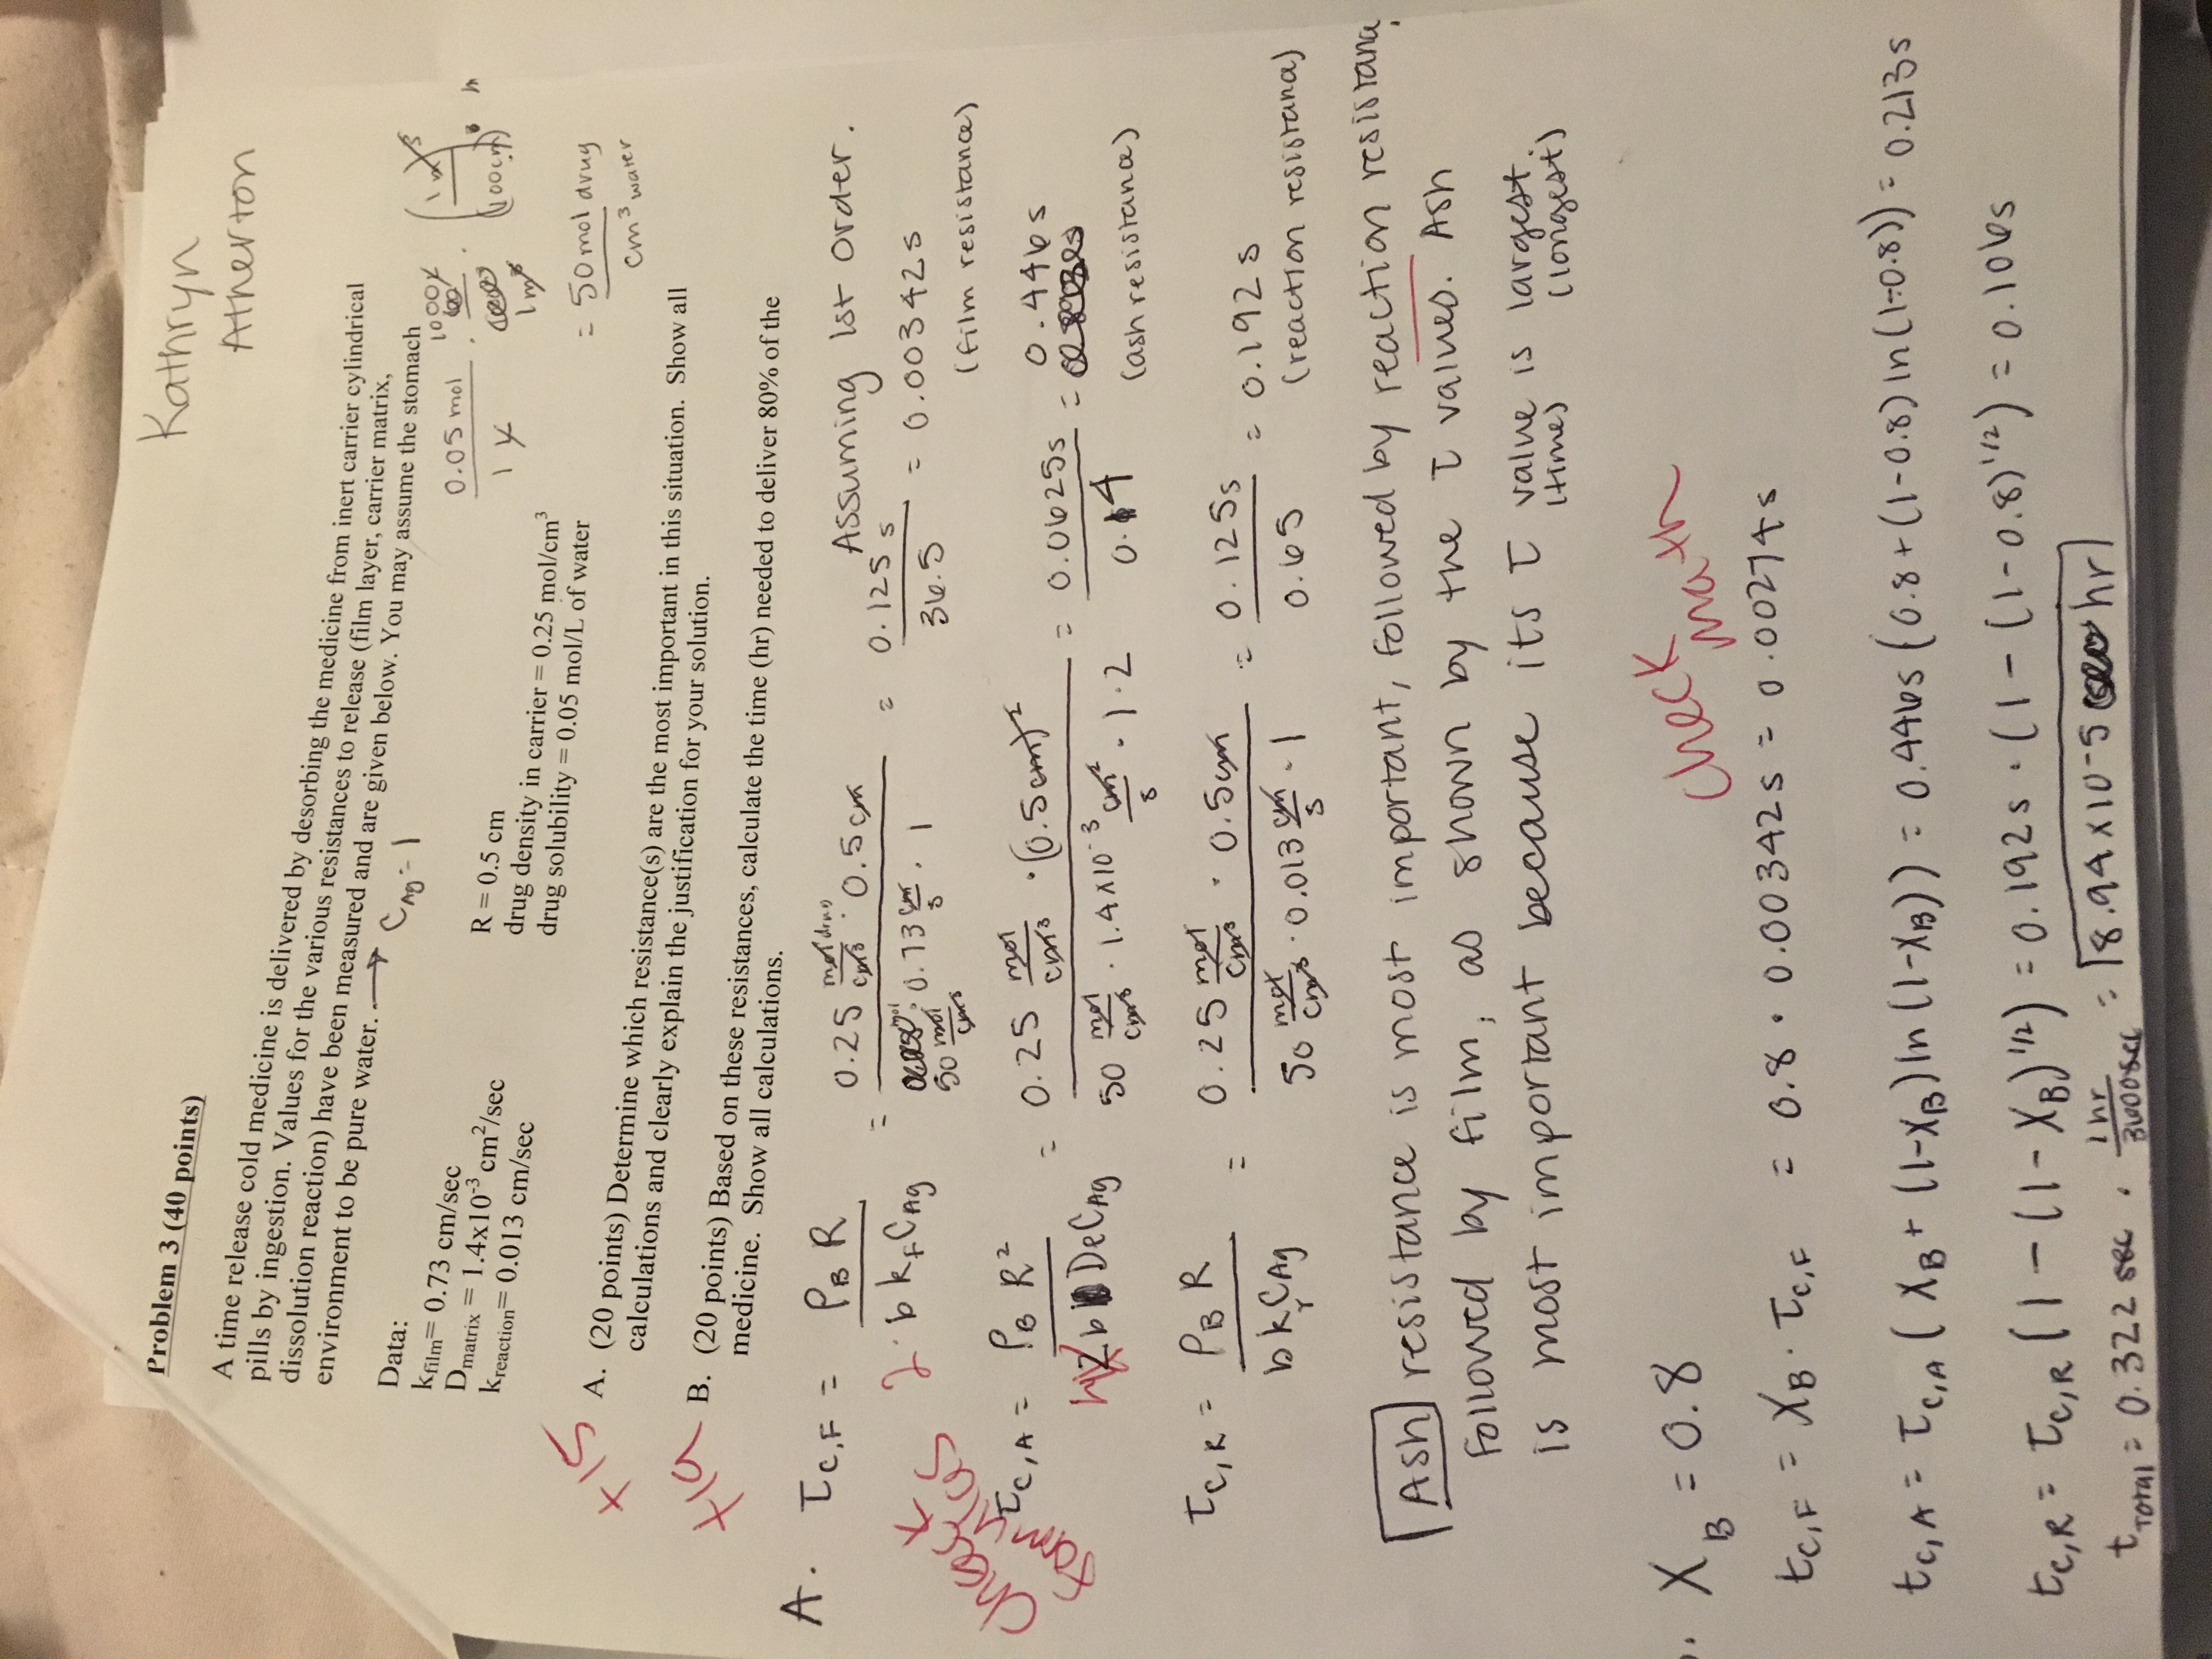 Problem 3 (40 points)
Kathryn
Atherton
A time release cold medicine is delivered by desorbing the medicine from inert carrier cylindrical
pills by ingestion. Values for the various resistances to release (film layer, carrier matrix,
dissolution reaction) have been measured and are given below. You may assume the stomach
environment to be pure water. → C_Ag = 1
Data:
k_film = 0.73 cm/sec
D_matrix = 1.4x10^-3 cm²/sec
k_reaction = 0.013 cm/sec
R = 0.5 cm
drug density in carrier = 0.25 mol/cm³
drug solubility = 0.05 mol/L of water
0.05 mol / 1 L · 1000 L / 1 m³ · (1 m)³ / (100 cm)³
= 50 mol drug / cm³ water
+15
A. (20 points) Determine which resistance(s) are the most important in this situation. Show all
calculations and clearly explain the justification for your solution.
+19
B. (20 points) Based on these resistances, calculate the time (hr) needed to deliver 80% of the
medicine. Show all calculations.
Assuming 1st order.
A. τ_C,F = ρ_B R / 2 · b k_F C_Ag = 0.25 mol drug/cm³ · 0.5 cm / 50 mol/cm³ · 0.73 cm/s · 1 = 0.125 s / 36.5 = 0.00342 s
(film resistance)
check
formulas
τ_C,A = ρ_B R² / 2 b De C_Ag = 0.25 mol/cm³ · (0.5 cm)² / 50 mol/cm³ · 1.4 x 10^-3 cm²/s · 1 · 2 = 0.0625 s / 0.14 = 0.446 s
(ash resistance)
τ_C,R = ρ_B R / b k_r C_Ag = 0.25 mol/cm³ · 0.5 cm / 50 mol/cm³ · 0.013 cm/s · 1 = 0.125 s / 0.65 = 0.192 s
(reaction resistance)
Ash resistance is most important, followed by reaction resistance,
followed by film, as shown by the τ values. Ash
is most important because its τ value is largest.
(time) (longest)
check
math
X_B = 0.8
t_C,F = X_B · τ_C,F = 0.8 · 0.00342 s = 0.00274 s
t_C,A = τ_C,A (X_B + (1-X_B) ln (1-X_B)) = 0.446 s (0.8 + (1-0.8) ln (1-0.8)) = 0.213 s
t_C,R = τ_C,R (1 - (1-X_B)^1/2) = 0.192 s · (1 - (1-0.8)^1/2) = 0.106 s
t_Total = 0.322 sec · 1 hr / 3600 sec = 8.94 x 10^-5 hr